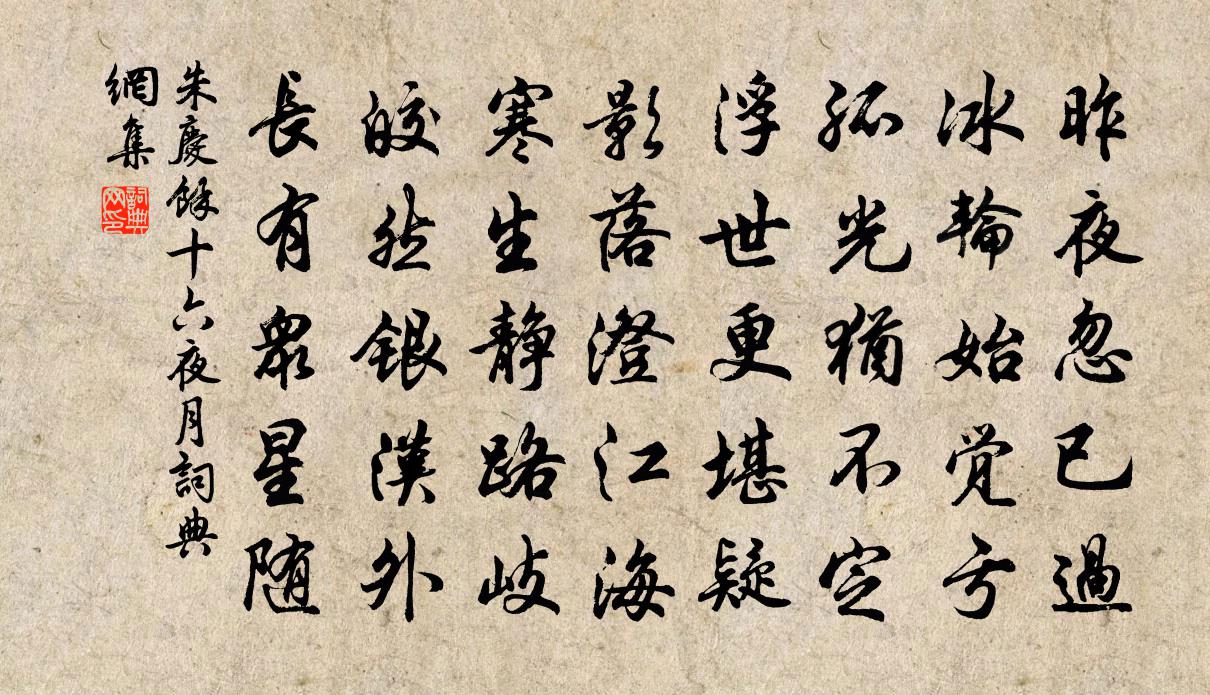 昨夜忽已過
冰輪始觉亏
孤光猶不定
浮世更堪疑
影落澄江海
寒生静路岐
皎然銀漢外
長有眾星随
朱慶餘十六夜月詞典
網集
詞典网印